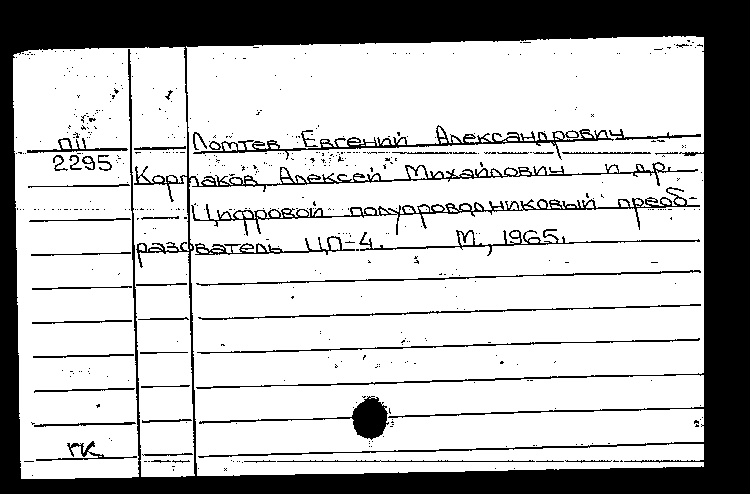 П11 Лоптев, Евгений Александрович
2295
Кормаков, Алексей Михайлович и др.
Цифровой полупроводниковый преоб-
разователь ЦП-4. М., 1965.
гк